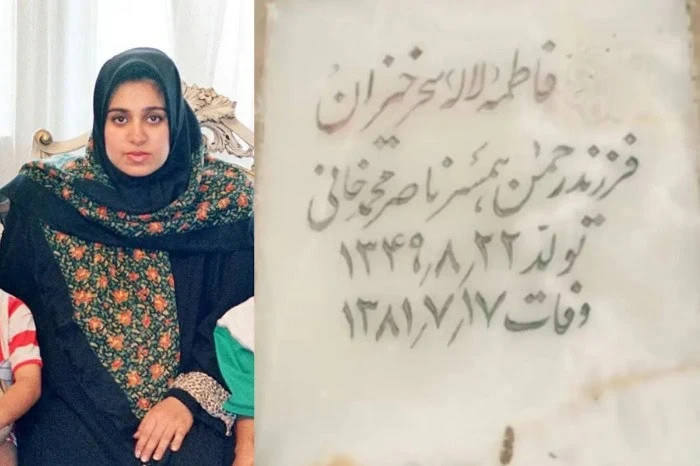 فاطمه لاله سحرخیزان
فرزند رحمن همسر ناصر محمدخانی
تولد ۲۲٫۸٫۱۳۴۹
وفات ۱۷٫۷٫۱۳۸۱